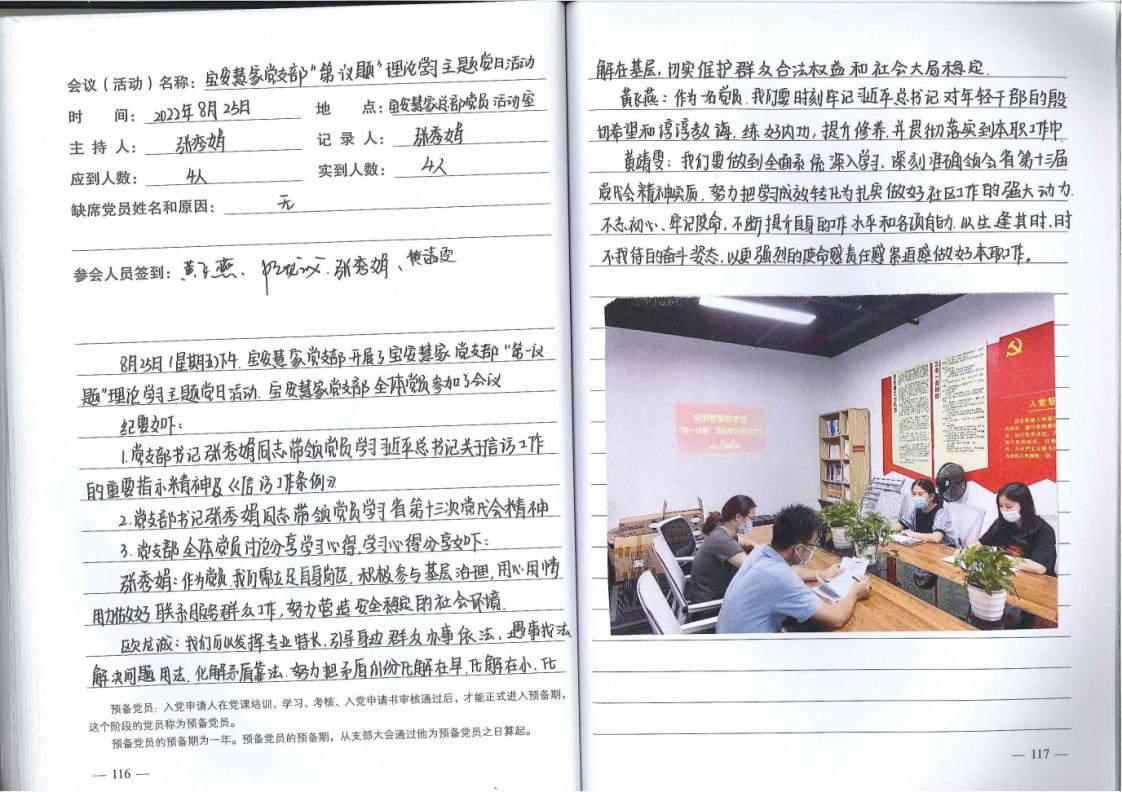 会议（活动）名称：宝安慧家党支部“第议题”理论学习主题党日活动
时 间：2022年8月25日 地 点：宝安慧家总部党员活动室
主 持 人：张秀娟 记 录 人：张秀娟
应到人数：4人 实到人数：4人
缺席党员姓名和原因：无
参会人员签到：黄飞燕、欧龙诚、张秀娟、黄靖雯
8月25日（星期五）下午，宝安慧家党支部开展了宝安慧家党支部“第一议
题”理论学习主题党日活动，宝安慧家党支部全体党员参加了会议
纪要如下：
1.党支部书记张秀娟同志带领党员学习习近平总书记关于信访工作
的重要指示精神及《信访工作条例》
2.党支部书记张秀娟同志带领党员学习省第十三次党代会精神
3.党支部全体党员讨论分享学习心得，学习心得分享如下：
张秀娟：作为党员，我们需立足自身岗位，积极参与基层治理，用心用情
用力做好联系服务群众工作，努力营造安全稳定的社会环境。
欧龙诚：我们可以发挥专业特长，引导身边群众办事依法、遇事找法
解决问题用法、化解矛盾靠法，努力把矛盾纠纷化解在早，化解在小，化
预备党员：入党申请人在党课培训、学习、考核、入党申请书审核通过后，才能正式进入预备期，
这个阶段的党员称为预备党员。
预备党员的预备期为一年。预备党员的预备期，从支部大会通过他为预备党员之日算起。
— 116 —
解在基层，切实维护群众合法权益和社会大局稳定.
黄飞燕：作为一名党员，我们要时刻牢记习近平总书记对年轻干部的殷
切希望和谆谆教诲，练好内功，提升修养，并贯彻落实到本职工作中
黄靖雯：我们要做到全面系统深入学习，深刻准确领会省第十三届
党代会精神实质，努力把学习成效转化为扎实做好社区工作的强大动力.
不忘初心、牢记使命，不断提升自身的工作水平和各项能力，以生逢其时、时
不我待的奋斗姿态，以更强烈的使命感责任感紧迫感做好本职工作。
入党誓
— 117 —